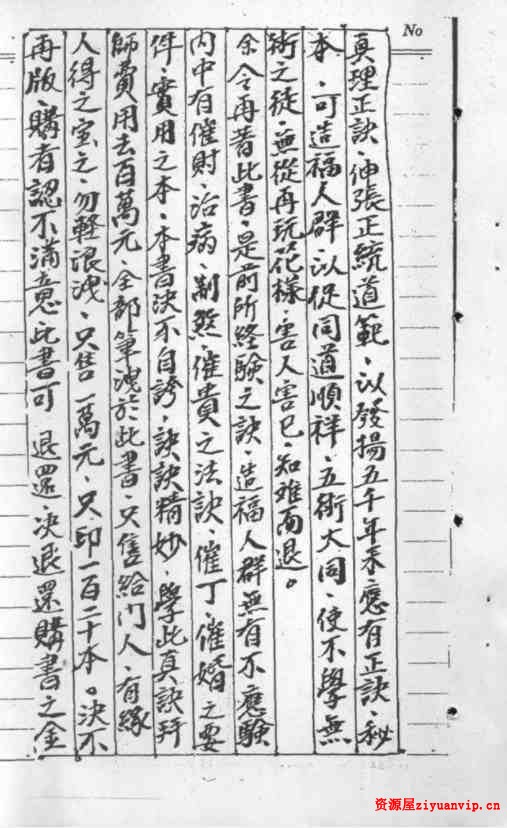 No
真理正訣、伸張正統道範、以發揚五千年來應有正訣、秘
本、可造福人群以促同道順祥、五術大同、使不學無
術之徒、無從再玩花樣、害人害己、知难而退。
余今再著此書、是前所経驗之訣、造福人群無有不應驗
內中有催財、治病、制煞、催貴之法訣、催丁、催婚之要
件、實用之本、本書決不自誇、訣訣精妙、學此真訣拜
師費用去百萬元、全部筆洩於此書、只售給门人、有緣
人得之宝之、勿輕浪洩、只售一萬元、只印一百二十本。決不
再版、購者認不滿意此書可 退還、決退還購書之金
资源屋ziyuanvip.cn